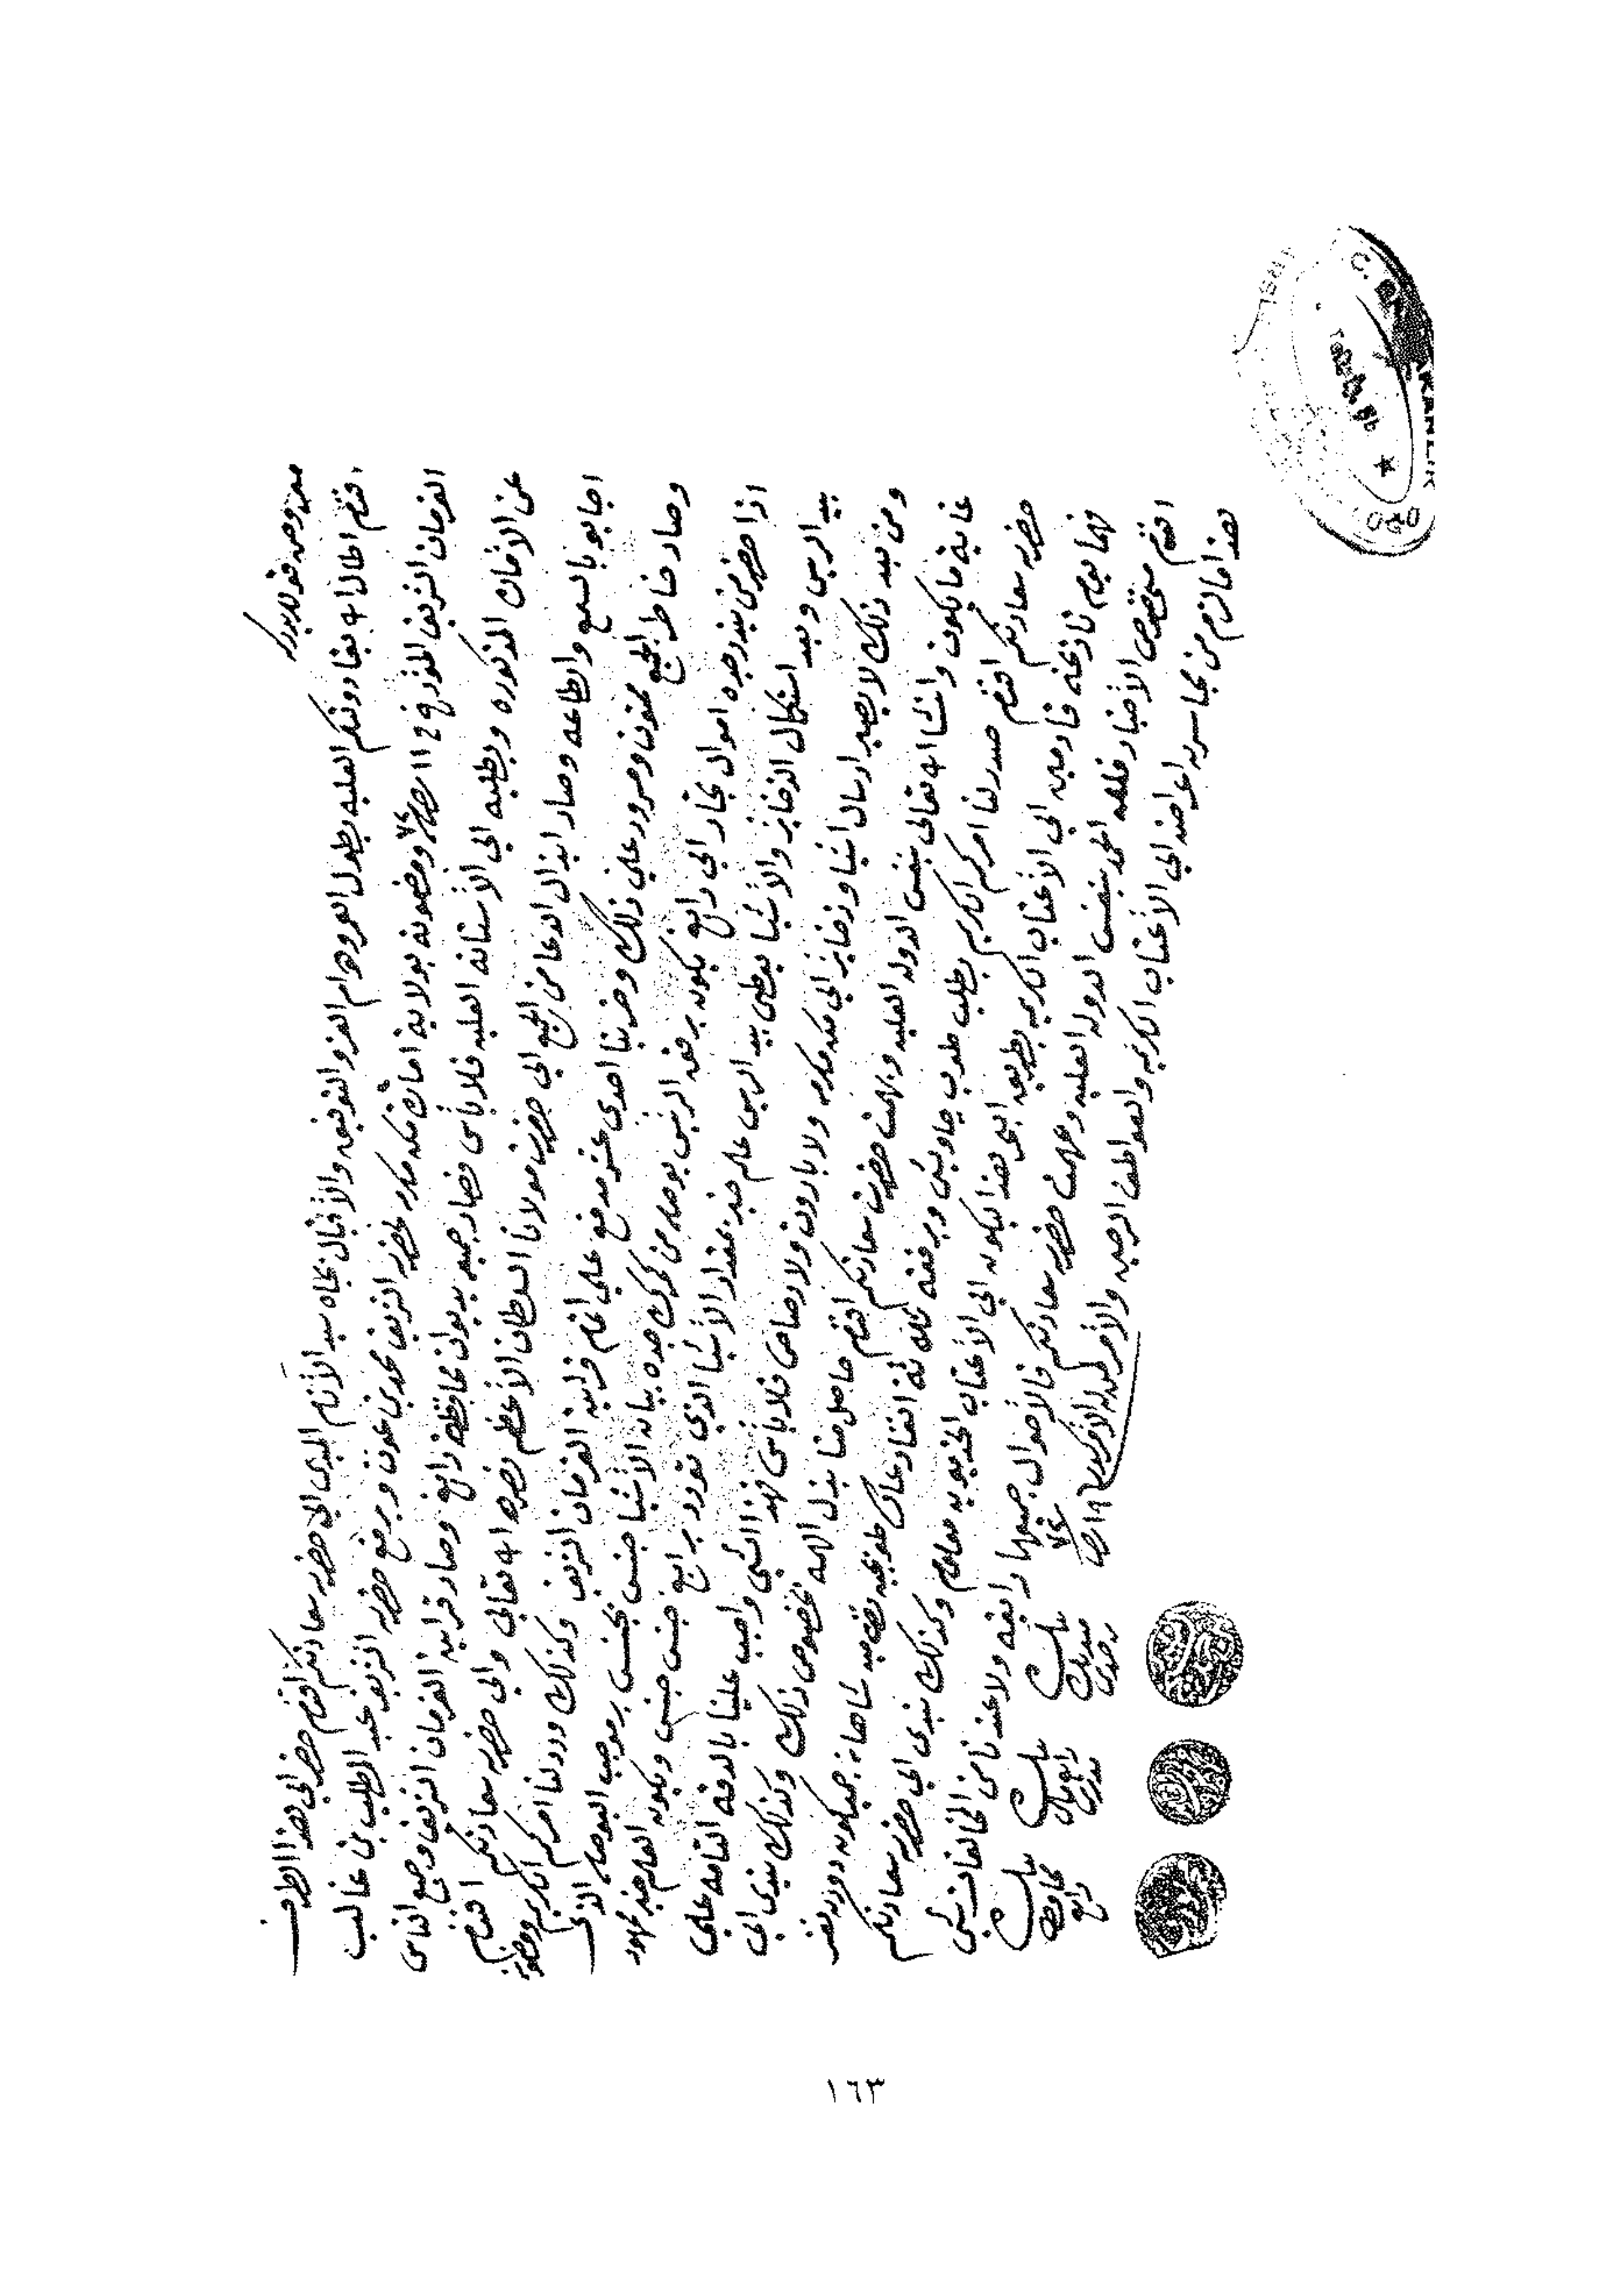 معروض قوللريدركه
افندم اطال الله بقا دولتكم العليه بطول العمر ودوام العز والتوفيق والأقبال بجاه سيد الأنام المبدى الي حضرة سعادتكم افندم حضر الي هذا الطرف
الفرمان الشريف المؤرخ في ١١ ص ٧٢ ومضمونه بولاية امارت مكه مكرمه لحضرة الشريف محمد بن عون وبرفع حضرة الشريف عبد المطلب بن غالب
عن الأمارت المذكوره وبطلبه الي الأستانه العليه فلا بأس فصار جميعه بديوان محافظة رابغ وصار قراية الفرمان الشريف وجميع الناس
اجابو بالسمع والطاعه وصار ابذال الدعا من الجميع الي حضرت مولانا السلطان الأعظم نصره الله تعالي والي حضرة سعادتكم افندم
وصار خاطر الجميع ممنون ومسرور علي ذلك وضربنا احدى عشر مدفع علي اتمام قراية الفرمان الشريف وكذلك وردلنا امركم الكريم ومضمونه
اذا حضر من بندر جده اموال تجار الي رابغ يكون برفقه الريس بوصله من كمرك جده ببيان الأشيا جنس بجنس برموجب البوصله الذي
بيد الريس وبعد استكمال الذخاير والأشيا يعطى بيد الريس علم خبر بمقدار الأشيا الذي تورد برابغ جنس جنس ويكون العلم خبر ممهور
ومن بعد ذلك لا يصير ارسال اشيا وذخاير الي مكه مكرمه ولا بارود ولا رصاص فلا بأس فهذا الشي واجب علينا بالدقه التامه علي
غاية ما يكون وانشا الله تعالى بنفس الدوله العليه وبهمت حضرت سعادتكم افندم حاصل منا بذل الهمه بخصوص ذلك وكذلك نبدى الي
حضرة سعادتكم افندم صدر لنا امركم الكريم بطلب طوب جاويش وبرفقه ثلاثة انفار عساكر طوبجيه نظاميه شاهانه جميعهم دورت نفر
فهما يوم تاريخه قادمين الي الأعتاب الكريمه بطريق البحر لهذا ليكون الي الأعتاب الخديويه معلوم وكذلك نبدى الي حضرة سعادتكم
افندم بخصوص الأخبار فلله الحمد بنفس الدوله العليه وبهمت حضرة سعادتكم فالأحوال جميعها رايقه ولا عندنا من المخالفات شي
هذا ما لزم من تجاسر به اعراضه الي الأعتاب الكريمه والعواطف الرحيمه والأمر لمن له الأمر افندم ١٩ ص ٧٢
محافظ رابغ
١٦٣